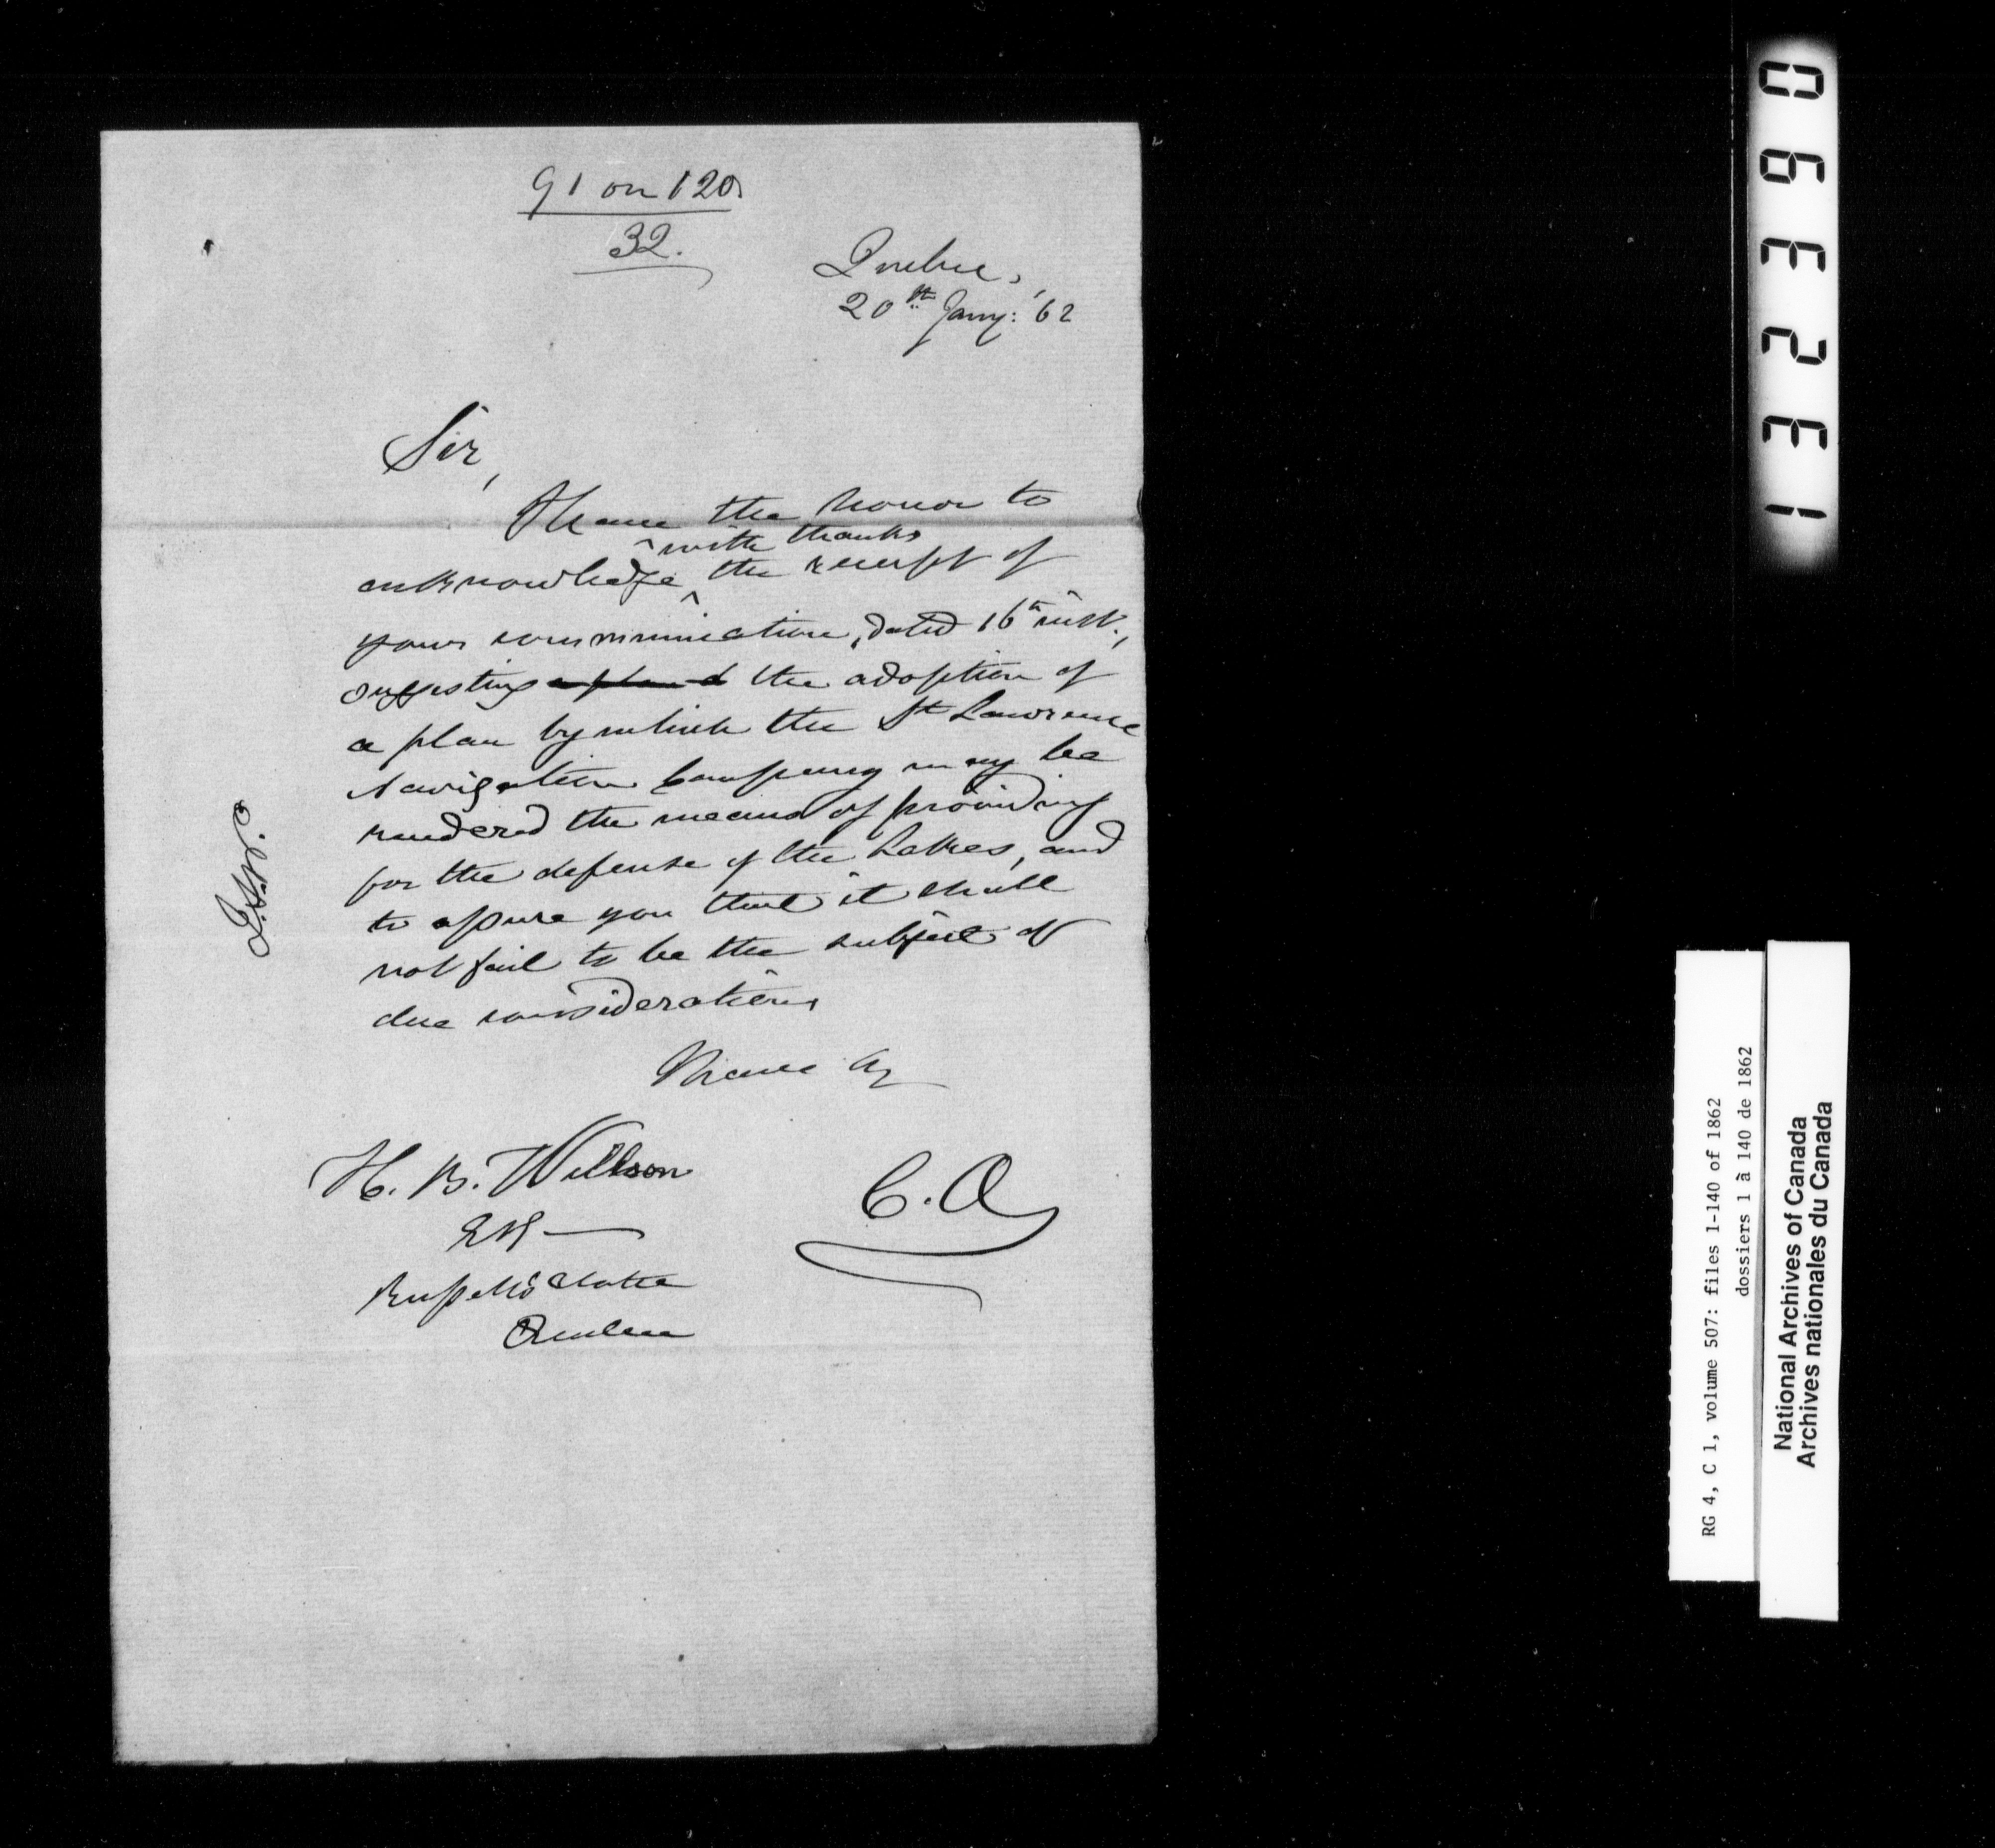 91 on 120
32.
Quebec,
20th Jany: '62
Sir,
I have the honor to
with thanks
acknowledge the receipt of
your communication, dated 16th inst.,
suggesting a plan the adoption of
a plan by which the St Lawrence
Navigation Company may be
rendered the means of providing
for the defense of the Lakes, and
to assure you that it shall
not fail to be the subject of
due consideration,
I have &c
H. B. Willson
Esq
Russell's Hotel
Quebec
C. A.
013236 0
RG 4, C 1, volume 507: files 1-140 of 1862
dossiers 1 à 140 de 1862
National Archives of Canada
Archives nationales du Canada